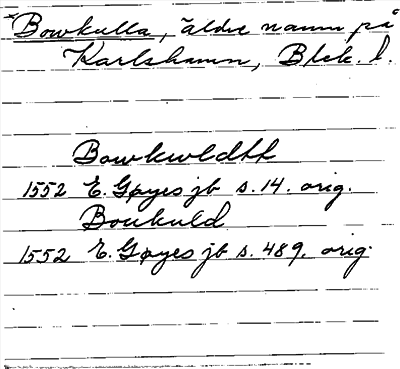 *Bowkulla, äldre namn på
Karlshamn, Blek. l.
Bowkwldtt
1552 E. Gøyes jb s. 14. orig.
Boukuld
1552 E. Gøyes jb s. 489. orig.